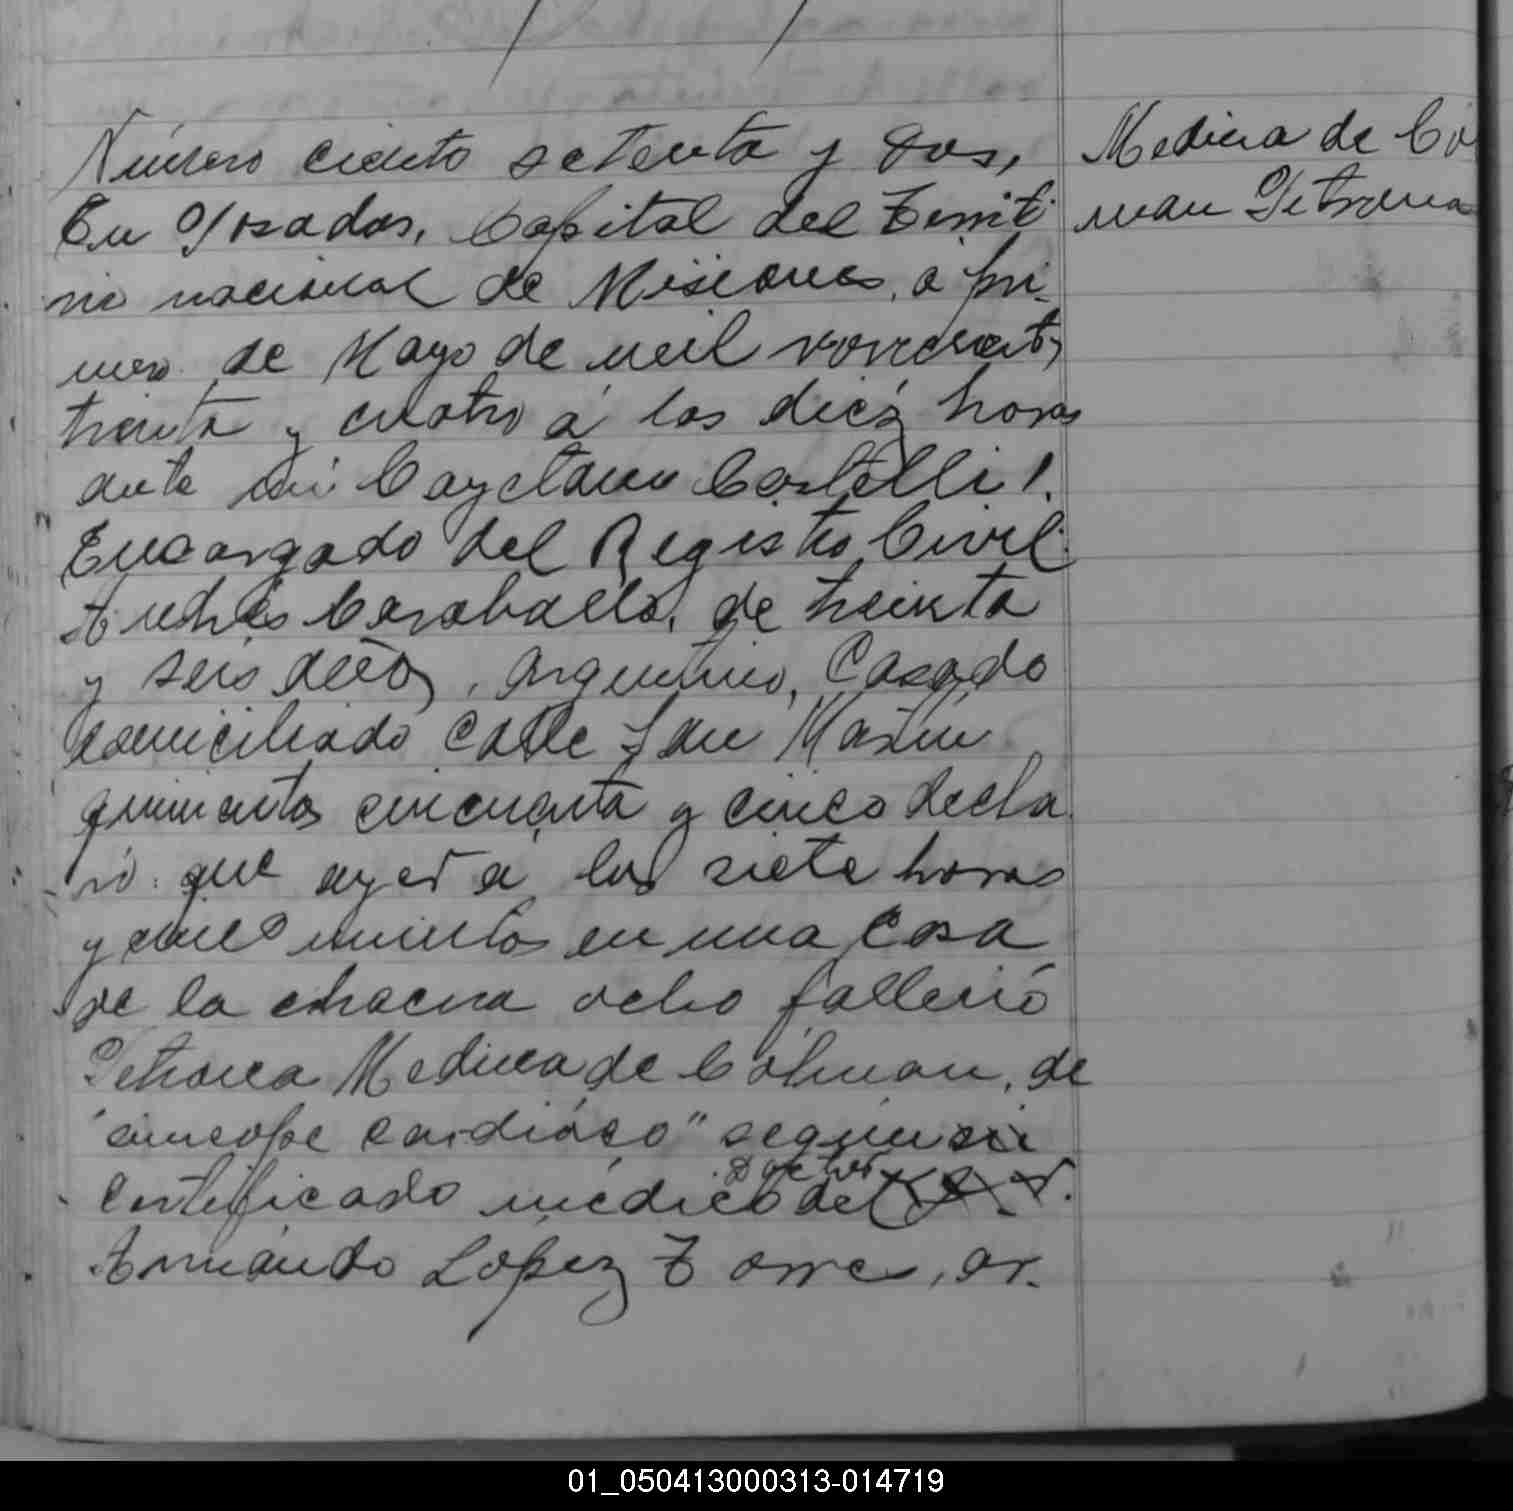 Número ciento setenta y dos,
En Posadas, Capital del Territ
rio nacional de Misiones, a pri
mero de Mayo de mil novecient
treinta y cuatro á las diéz horas
ante mi Cayetano Castelli
Encargado del Registro Civil
Andrés Caraballo, de treinta
y seis años, argentino, Casado
domiciliado calle San Martin
quinientos cincuenta y cinco decla
ró que ayer a las siete horas
y cinco minutos en una casa
de la chacra ocho falleció
Petrona Medina de Cólman, de
"sincope cardiáco" según
Doctor
certificado médico del
Armando López Torres, ar.
Medina de Co
man Petrona
01_050413000313-014719